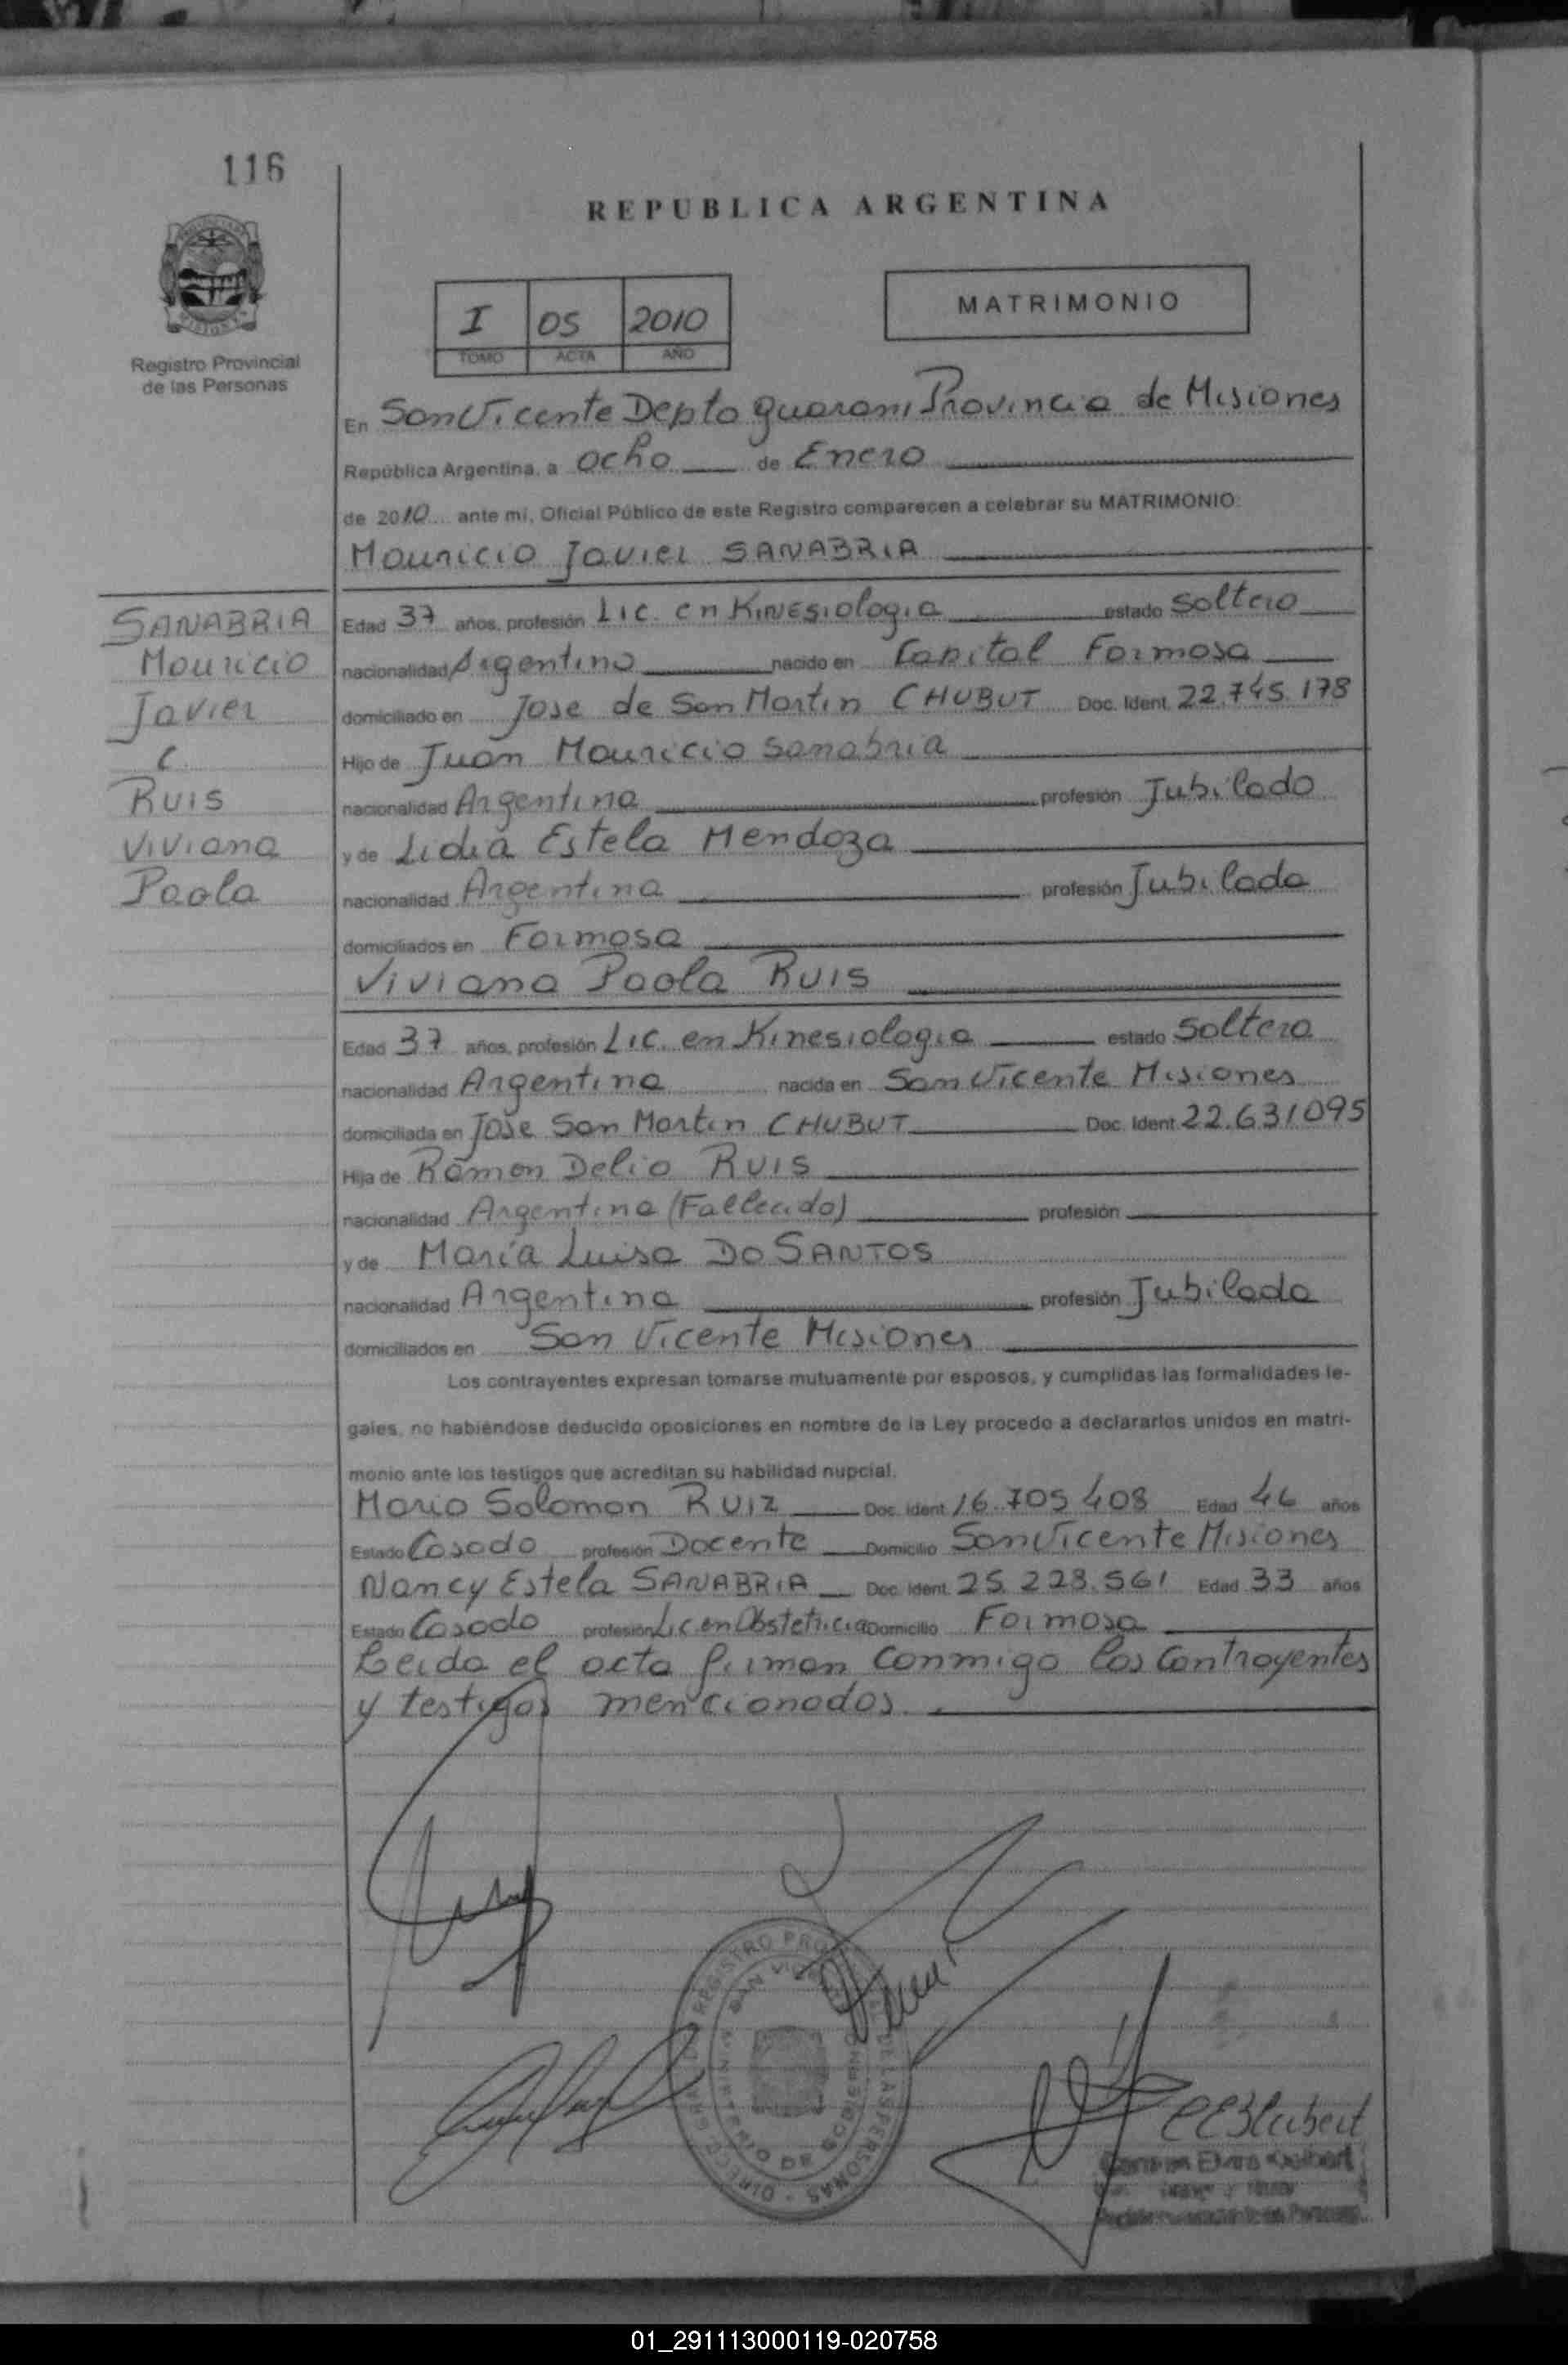 116
REPUBLICA ARGENTINA
I 05 2010
TOMO ACTA AÑO
MATRIMONIO
Registro Provincial
de las Personas
En San Vicente Depto Guarani Provincia de Misiones
República Argentina, a ocho de Enero
de 2010 ante mí, Oficial Público de este Registro comparecen a celebrar su MATRIMONIO:
Mauricio Javier SANABRIA
SANABRIA
Mauricio
Javier
C
RUIS
Viviana
Paola
Edad 37 años, profesión Lic. en Kinesiologia estado Soltero
nacionalidad Argentino nacido en Capital Formosa
domiciliado en Jose de San Martin CHUBUT Doc. Ident. 22.745.178
Hijo de Juan Mauricio Sanabria
nacionalidad Argentina profesión Jubilado
y de Lidia Estela Mendoza
nacionalidad Argentina profesión Jubilada
domiciliados en Formosa
Viviana Paola RUIS
Edad 37 años, profesión Lic. en Kinesiologia estado Soltera
nacionalidad Argentina nacida en San Vicente Misiones
domiciliada en Jose San Martin CHUBUT Doc. Ident. 22.631095
Hija de Ramon Delio RUIS
nacionalidad Argentina (Fallecido) profesión
y de María Luisa DO SANTOS
nacionalidad Argentina profesión Jubilada
domiciliados en San Vicente Misiones
Los contrayentes expresan tomarse mutuamente por esposos, y cumplidas las formalidades le-
gales, no habiéndose deducido oposiciones en nombre de la Ley procedo a declararlos unidos en matri-
monio ante los testigos que acreditan su habilidad nupcial.
Mario Solomon RUIZ Doc. Ident. 16.705 408 Edad 46 años
Estado Casado profesión Docente Domicilio San Vicente Misiones
Nancy Estela SANABRIA Doc. Ident. 25.223.561 Edad 33 años
Estado Casado profesión Lic. en Obstetricia Domicilio Formosa
Leida el acta firman conmigo los Contrayentes
y testigos mencionados.
01_291113000119-020758